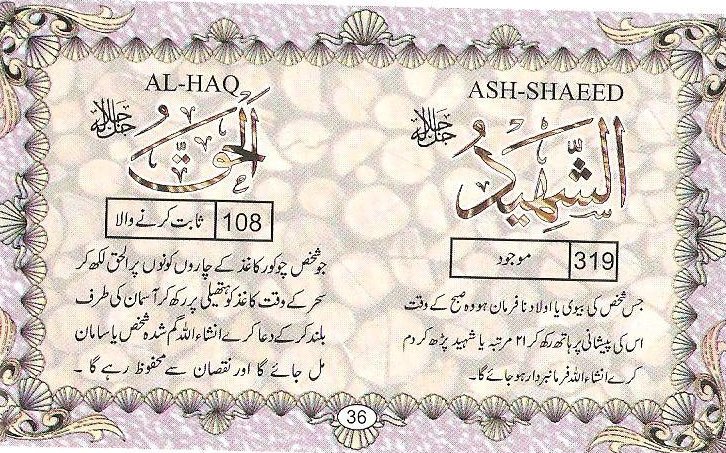 ASH-SHAEED
جل جلاله
الشَّهِيْدُ
موجود 319
جس شخص کی بیوی یا اولاد نافرمان ہو وہ صبح کے وقت
اس کی پیشانی پر ہاتھ رکھ کر ۲۱ مرتبہ یا شہید پڑھ کر دم
کرے انشاء اللہ فرمانبردار ہو جائے گا۔
AL-HAQ
جل جلاله
اَلْحَقُّ
ثابت کرنے والا 108
جو شخص چوکور کاغذ کے چاروں کونوں پر الحق لکھ کر
سحر کے وقت کاغذ کو ہتھیلی پر رکھ کر آسمان کی طرف
بلند کر کے دعا کرے انشاء اللہ گم شدہ شخص یا سامان
مل جائے گا اور نقصان سے محفوظ رہے گا ۔
36